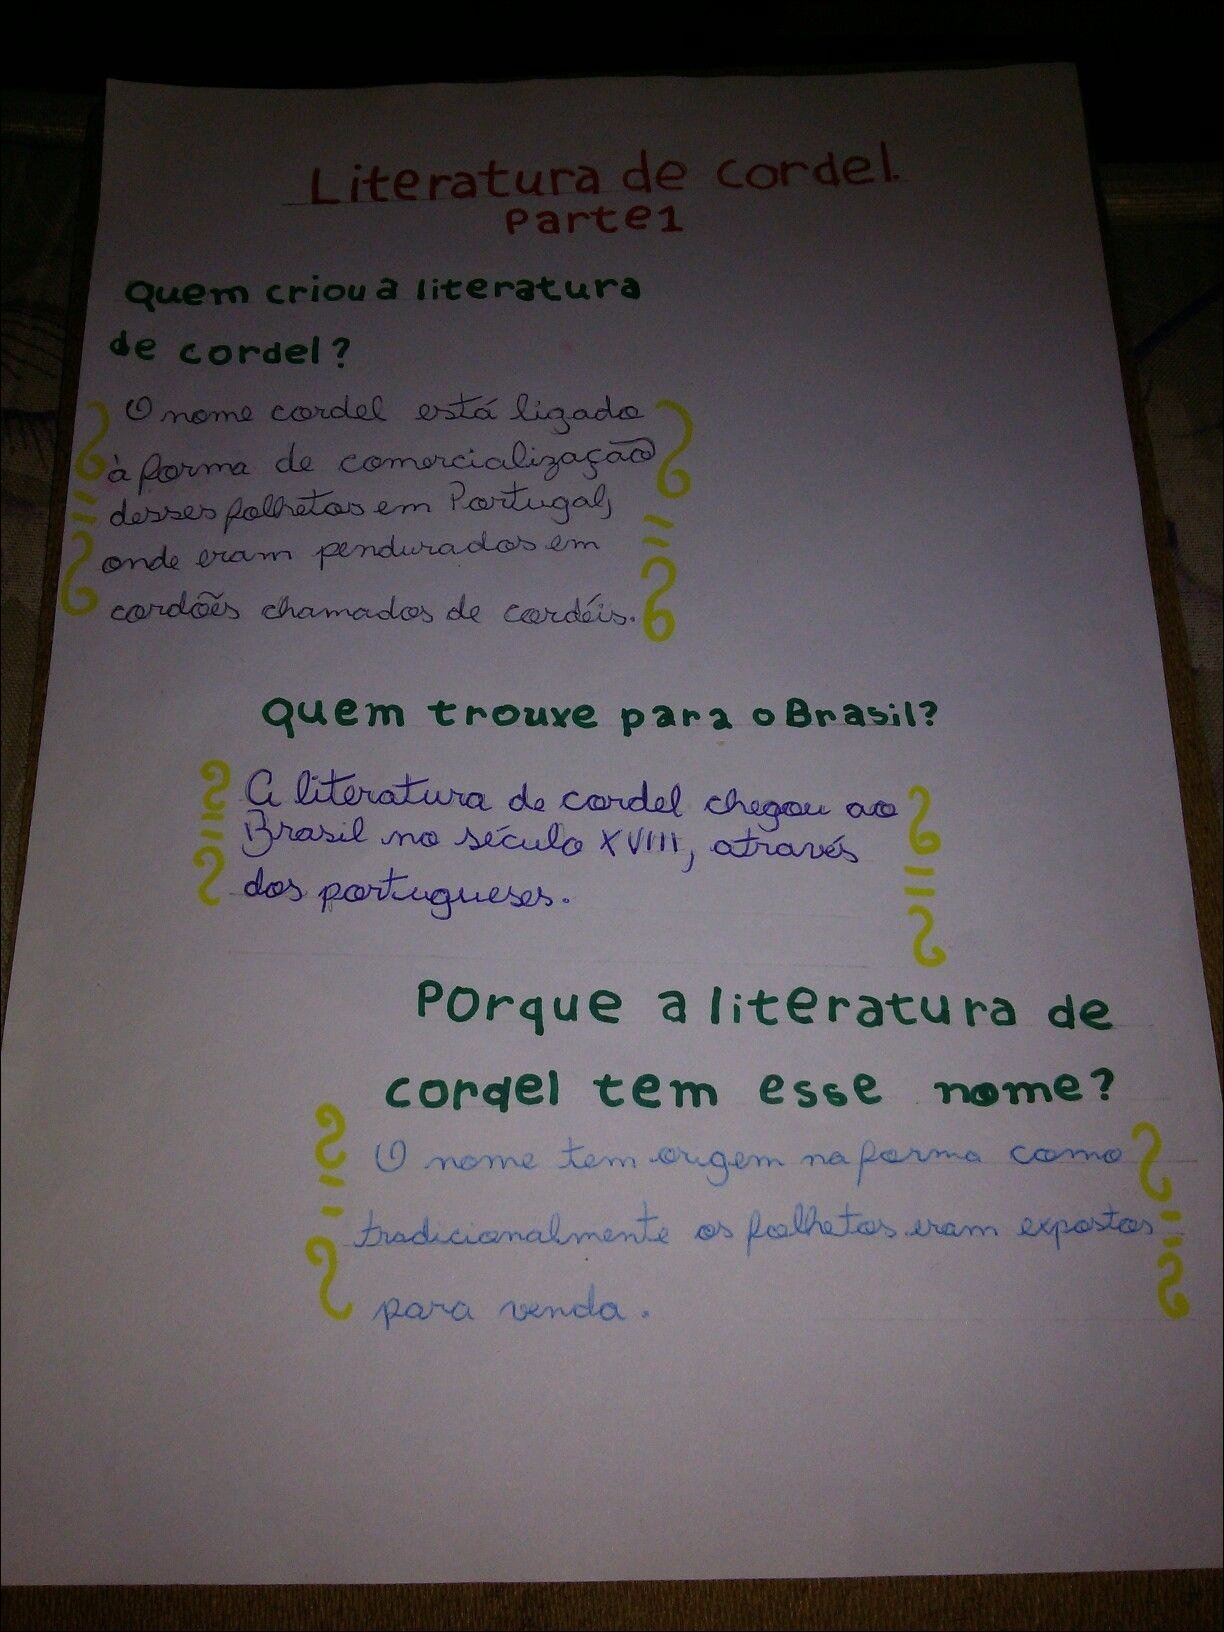 Literatura de cordel.
Parte 1
Quem criou a literatura
de cordel?
O nome cordel está ligado
à forma de comercialização
desses folhetos em Portugal,
onde eram pendurados em
cordões chamados de cordéis.
Quem trouxe para o Brasil?
A literatura de cordel chegou ao
Brasil no século XVIII, através
dos portugueses.
Porque a literatura de
cordel tem esse nome?
O nome tem origem na forma como
tradicionalmente os folhetos eram expostos
para venda.